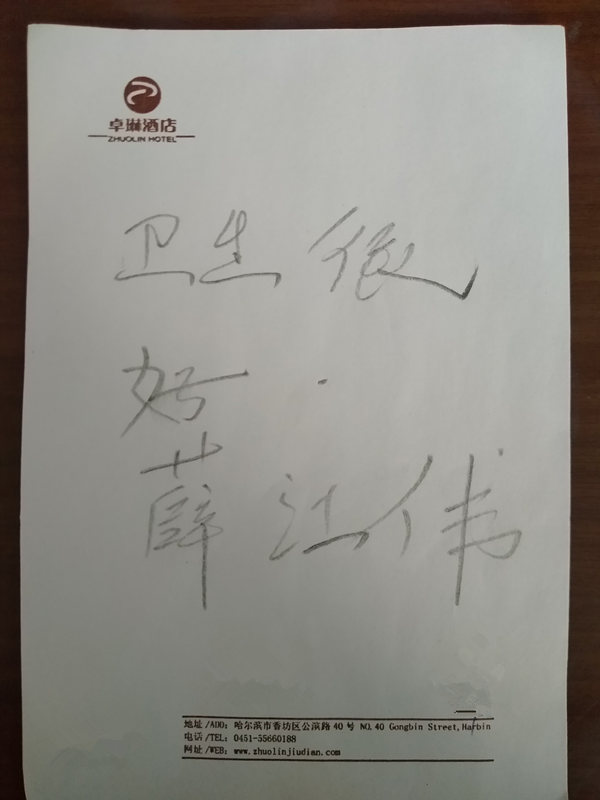 卓琳酒店
ZHUOLIN HOTEL
卫生很
好.
薛江伟
地址/ADD: 哈尔滨市香坊区公滨路40号 NO.40 Gongbin Street,Harbin
电话/TEL: 0451-55660188
网址/WEB: www.zhuolinjiudian.com